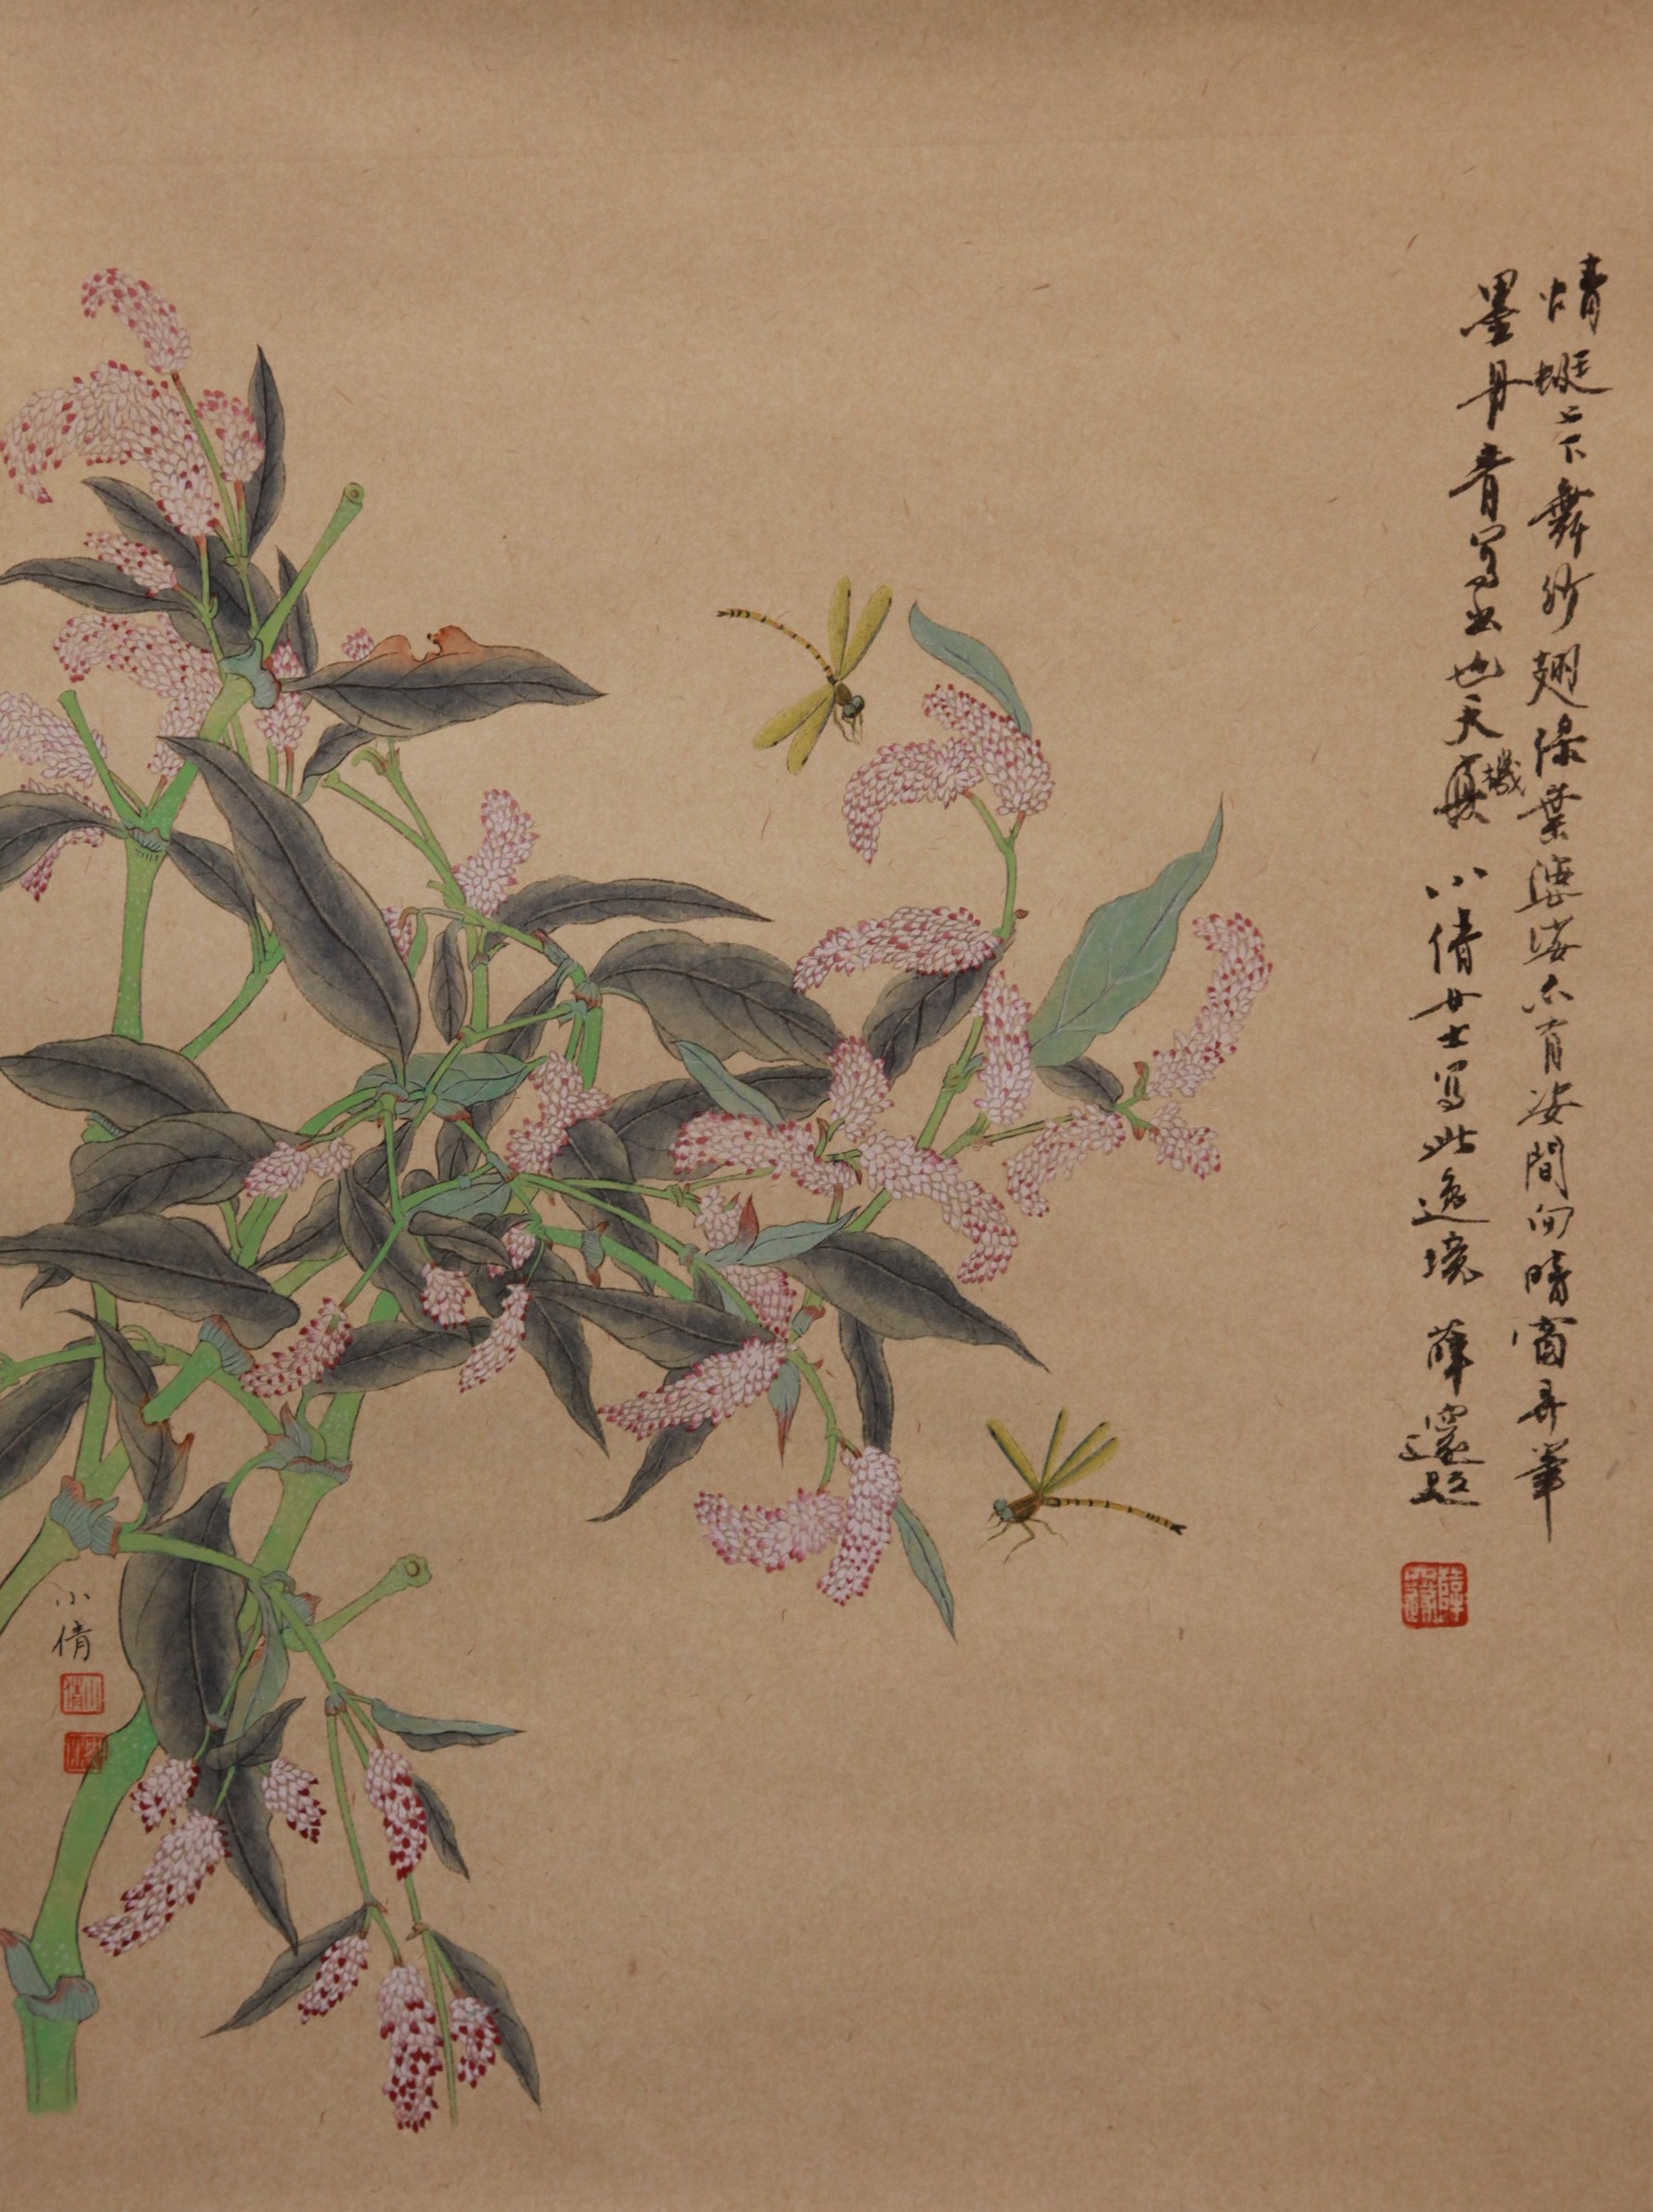 蜻蜓上下舞紗翅綠葉婆娑亦有姿間向晴窗弄筆
墨丹青写出也天真機 小倩女士写此逸境 薛邃題
小倩